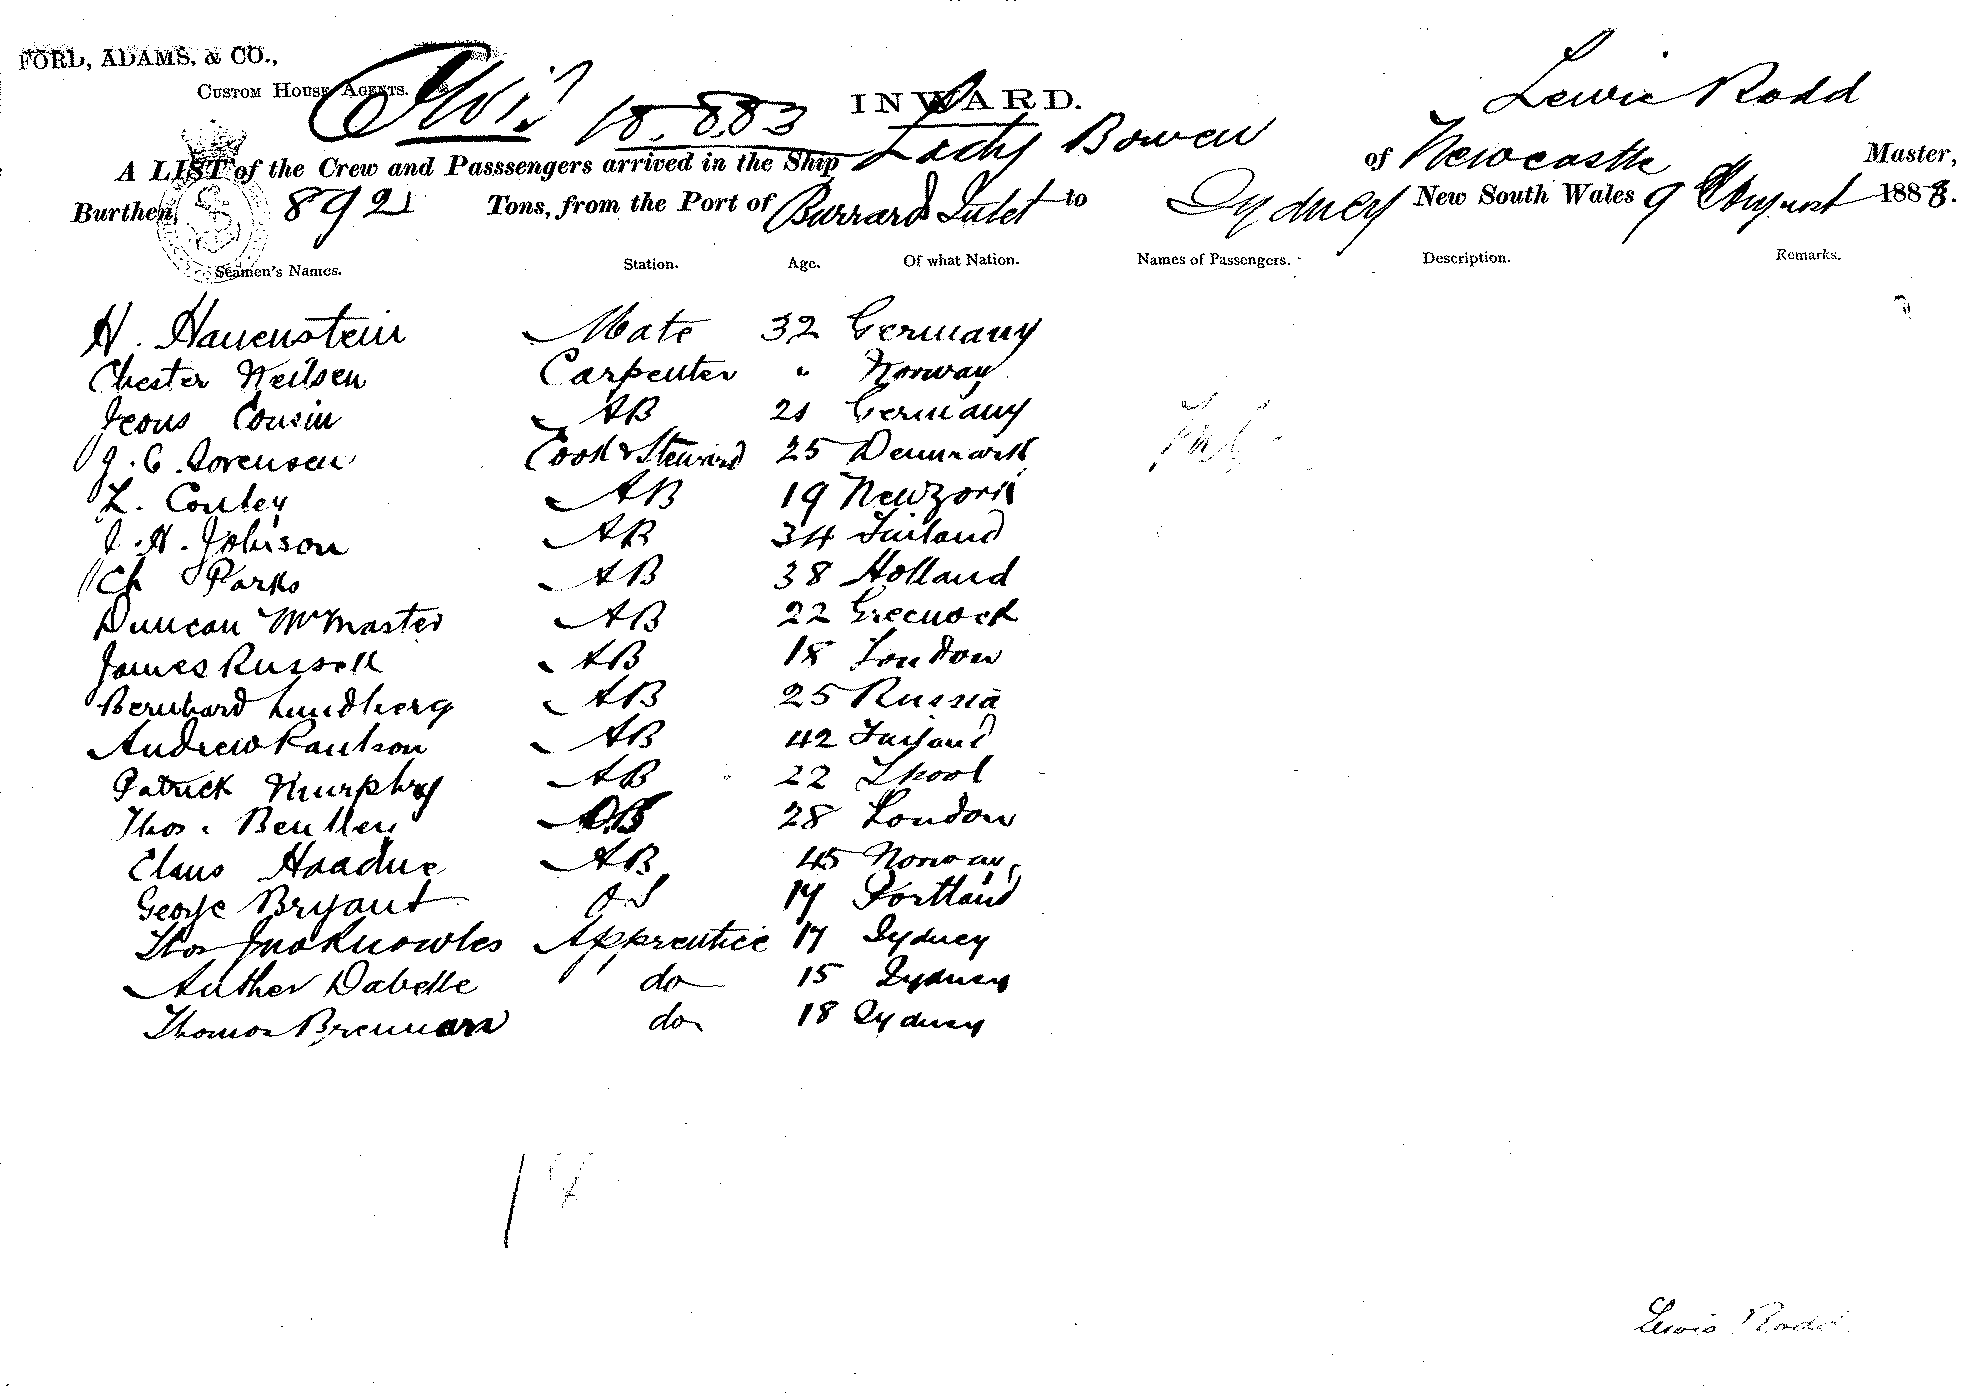 FORD, ADAMS, & CO.,
CUSTOM HOUSE AGENTS.
18.8.83
INWARD.
Lewis Rodd
A LIST of the Crew and Passsengers arrived in the Ship Lady Bowen of Newcastle Master,
Burthen, 892 Tons, from the Port of Burrard Inlet to Sydney New South Wales 9 August 1883.
Seamen's Names. Station. Age. Of what Nation. Names of Passengers. Description. Remarks.
H. Hauenstein Mate 32 Germany
Chester Neilsen Carpenter " Norway
Jeous Cousin AB 21 Germany
J. C. Sorensen Cook & Steward 25 Denmark
L. Conley AB 19 New York
J. H. Johnson AB 34 Finland
Ch Parks AB 38 Holland
Duncan McMaster AB 22 Greenock
James Russell AB 18 London
Bernhard Lundberg AB 25 Russia
Andrew Paulson AB 42 Finland
Patrick Murphy AB 22 Lpool
Thos. Bentley 28 London
Claus AB 45 Norway
George Bryant OS 17 Portland
Thos Jno Knowles Apprentice 17 Sydney
Auther Dabelle do 15 Sydney
Thomas Brennan do 18 Sydney
Lewis Rodd